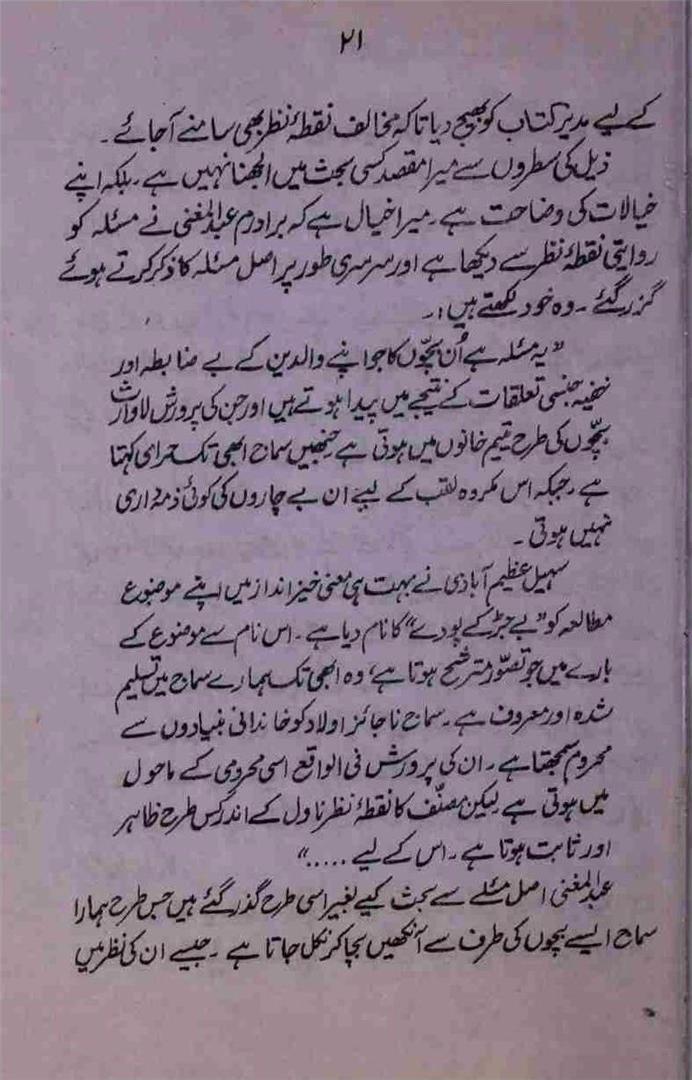 ۲۱
کے لیے مدیر کتاب کو بھیج دیا تاکہ مخالف نقطۂ نظر بھی سامنے آ جائے۔
ذیل کی سطروں سے میرا مقصد کسی بحث میں الجھنا نہیں ہے۔ بلکہ اپنے
خیالات کی وضاحت ہے۔ میرا خیال ہے کہ برادرم عبدالمغنی نے مسئلہ کو
روایتی نقطۂ نظر سے دیکھا ہے اور سرسری طور پر اصل مسئلہ کا ذکر کرتے ہوئے
گزر گئے۔ وہ خود لکھتے ہیں:۔
”یہ مسئلہ ہے اُن بچّوں کا جو اپنے والدین کے بے ضابطہ اور
خفیہ جنسی تعلقات کے نتیجے میں پیدا ہوتے ہیں اور جن کی پرورش لاوارث
بچّوں کی طرح یتیم خانوں میں ہوتی ہے جنھیں سماج ابھی تک حرامی کہتا
ہے۔ جبکہ اس مکروہ لقب کے لیے ان بے چاروں کی کوئی ذمہ داری
نہیں ہوتی۔
سہیل عظیم آبادی نے بہت ہی معنی خیز انداز میں اپنے موضوع
مطالعہ کو ”بے جڑ کے پودے“ کا نام دیا ہے۔ اس نام سے موضوع کے
بارے میں جو تصوّر مترشح ہوتا ہے، وہ ابھی تک ہمارے سماج میں تسلیم
شدہ اور معروف ہے۔ سماج ناجائز اولاد کو خاندانی بنیادوں سے
محروم سمجھتا ہے۔ ان کی پرورش فی الواقع اسی محرومی کے ماحول
میں ہوتی ہے لیکن مصنّف کا نقطۂ نظر ناول کے اندر کس طرح ظاہر
اور ثابت ہوتا ہے۔ اس کے لیے .....“
عبدالمغنی اصل مسئلے سے بحث کیے بغیر اسی طرح گذر گئے ہیں جس طرح ہمارا
سماج ایسے بچوں کی طرف سے آنکھیں بچا کر نکل جاتا ہے۔ جیسے ان کی نظر میں